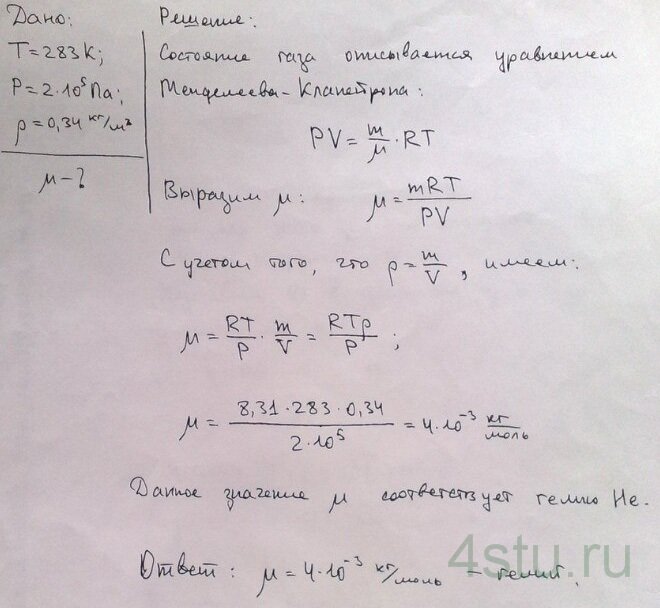 Дано:
T=283К;
P=2·10⁵Па;
ρ=0,34 кг/м³
μ-?
Решение:
Состояние газа описывается уравнением
Менделеева-Клапейрона:
PV = m/μ · RT
Выразим μ: μ = mRT/PV
С учетом того, что ρ = m/V, имеем:
μ = RT/P · m/V = RTρ/P ;
μ = 8,31·283·0,34 / 2·10⁵ = 4·10⁻³ кг/моль
Данное значение μ соответствует гелию He.
Ответ: μ = 4·10⁻³ кг/моль - гелий.
4stu.ru